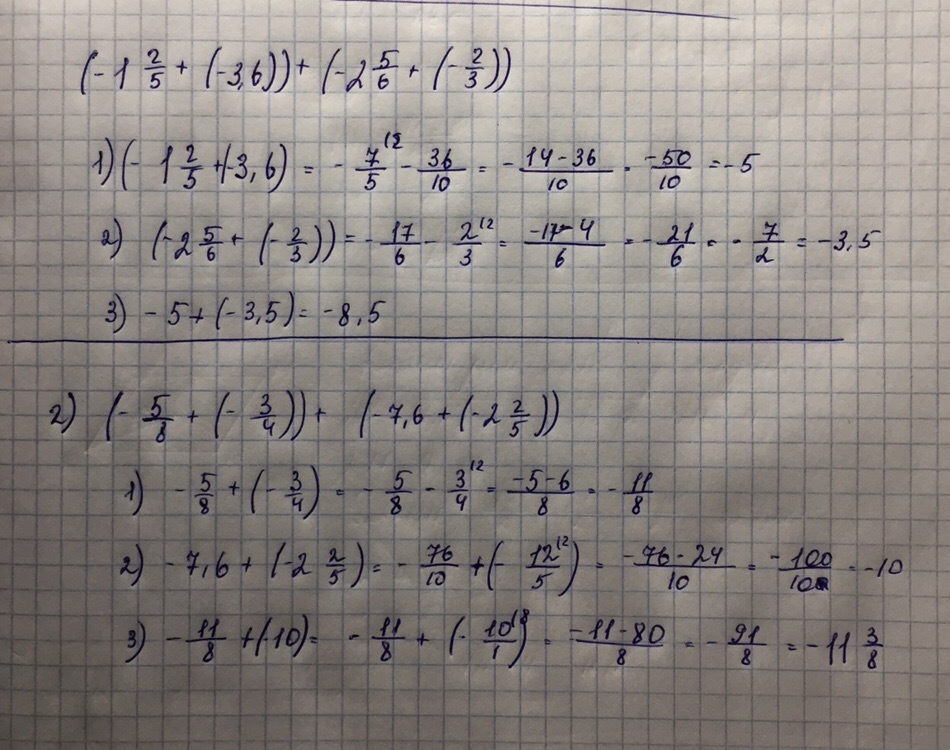 (-1 2/5 + (-3,6)) + (-2 5/6 + (-2/3))
1) (- 1 2/5 + (-3,6) = - 7/5 |2 - 36/10 = - 14-36/10 = -50/10 = -5
2) (-2 5/6 + (-2/3)) = - 17/6 - 2/3 |2 = -17-4/6 = - 21/6 = - 7/2 = -3,5
3) -5 + (-3,5) = -8,5
2) (- 5/8 + (- 3/4)) + (-7,6 + (-2 2/5))
1) - 5/8 + (- 3/4) = - 5/8 - 3/4 |2 = -5-6/8 = - 11/8
2) -7,6 + (-2 2/5) = - 76/10 + (- 12/5 |2) = -76-24/10 = -100/10 = -10
3) - 11/8 + (-10) = - 11/8 + (- 10/1 |8) = -11-80/8 = - 91/8 = -11 3/8